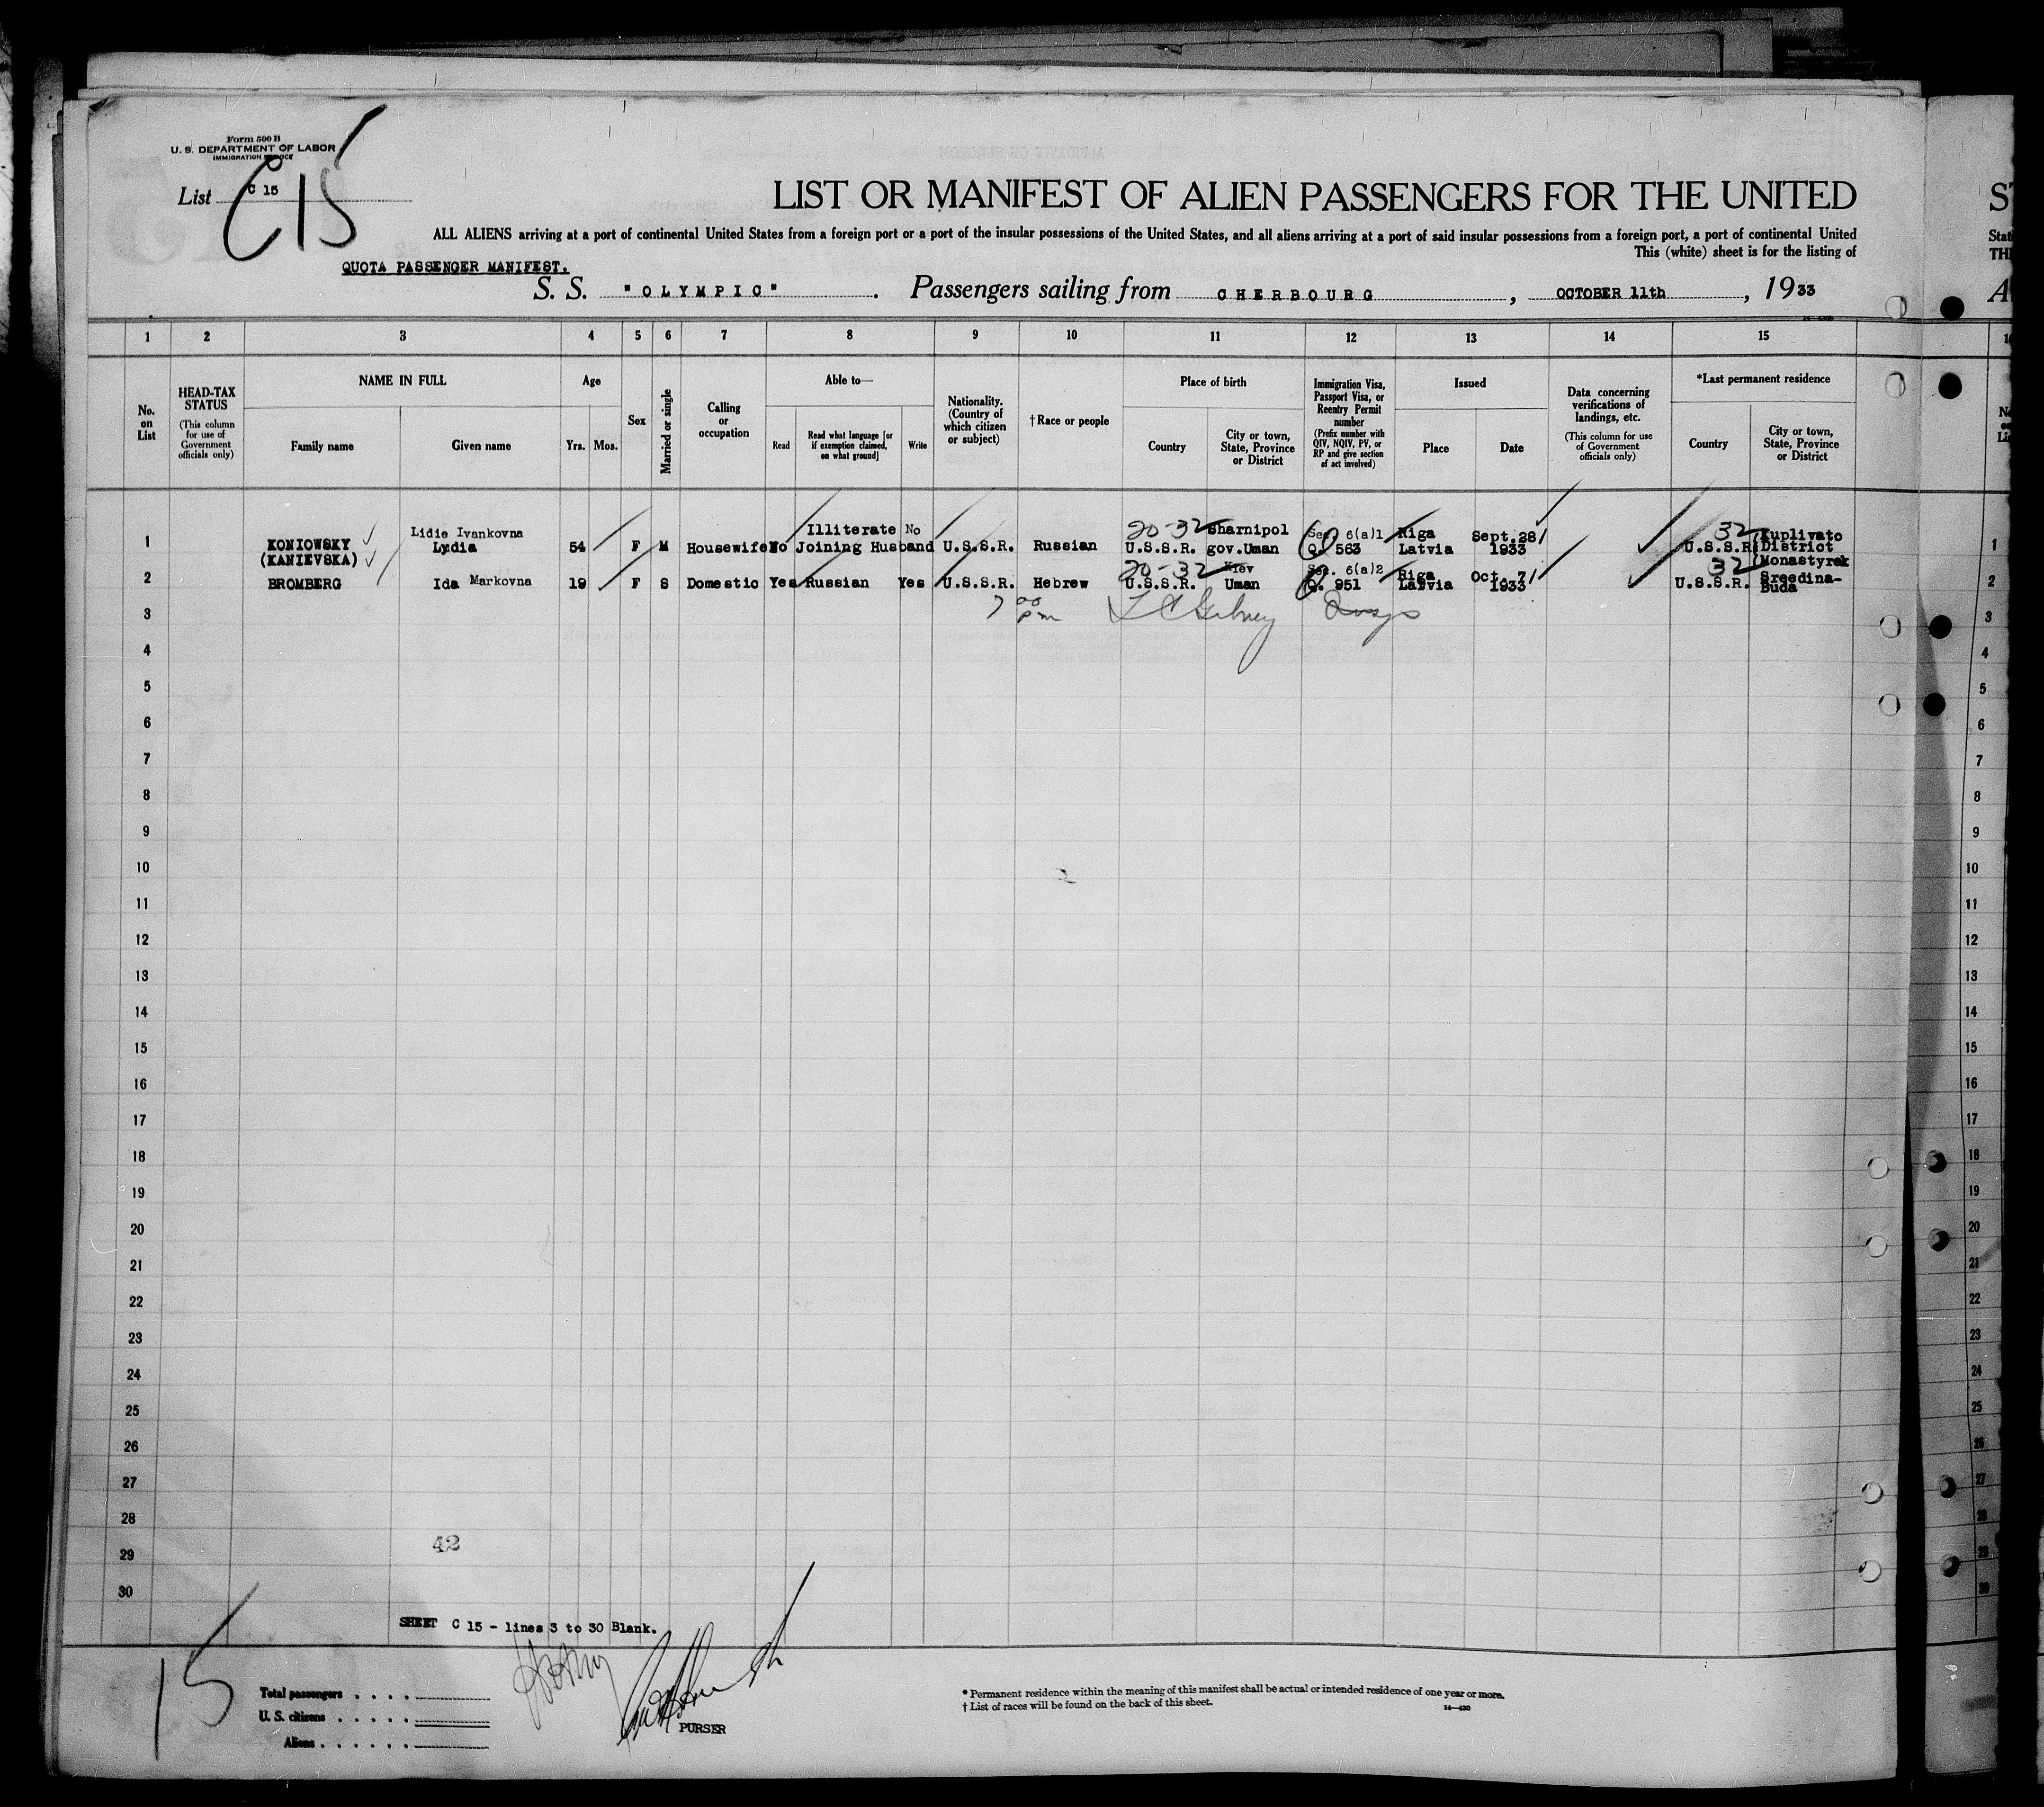 Form 500 B
U. S. DEPARTMENT OF LABOR
IMMIGRATION SERVICE
List C 15
C15
LIST OR MANIFEST OF ALIEN PASSENGERS FOR THE UNITED
ALL ALIENS arriving at a port of continental United States from a foreign port or a port of the insular possessions of the United States, and all aliens arriving at a port of said insular possessions from a foreign port, a port of continental United
This (white) sheet is for the listing of
QUOTA PASSENGER MANIFEST.
S. S. "OLYMPIC". Passengers sailing from CHERBOURG, OCTOBER 11th, 1933
1 2 3 4 5 6 7 8 9 10 11 12 13 14 15
No. on List
HEAD-TAX STATUS
(This column for use of Government officials only)
NAME IN FULL
Family name
Given name
Age
Yrs. Mos.
Sex
Married or single
Calling or occupation
Able to—
Read
Read what language [or if exemption claimed, on what ground]
Write
Nationality. (Country of which citizen or subject)
† Race or people
Place of birth
Country
City or town, State, Province or District
Immigration Visa, Passport Visa, or Reentry Permit number
(Prefix number with QIV, NQIV, PV, or RP and give section of act involved)
Issued
Place
Date
Data concerning verifications of landings, etc.
(This column for use of Government officials only)
*Last permanent residence
Country
City or town, State, Province or District
Lidie Ivankovna Illiterate No 20-32 Sharnipol Sec. 6(a)1 Riga Sept.28 32
1 KONIOWSKY Lydia 54 F M Housewife No Joining Husband U.S.S.R. Russian U.S.S.R. gov.Uman Q. 563 Latvia 1933 U.S.S.R. District
(KANIEVSKA) 20-32 Kiev Sec. 6(a)2 32 Monastyrek
2 BROMBERG Ida Markovna 19 F S Domestic Yes Russian Yes U.S.S.R. Hebrew U.S.S.R. Uman Q. 951 Riga Latvia Oct. 7 1933 U.S.S.R. Sreedina-Buda
3 7 00 pm
4
5
6
7
8
9
10
11
12
13
14
15
16
17
18
19
20
21
22
23
24
25
26
27
28
42
29
30
SHEET C 15 - lines 3 to 30 Blank.
15
Total passengers
U. S. citizens
Aliens
PURSER
* Permanent residence within the meaning of this manifest shall be actual or intended residence of one year or more.
† List of races will be found on the back of this sheet.